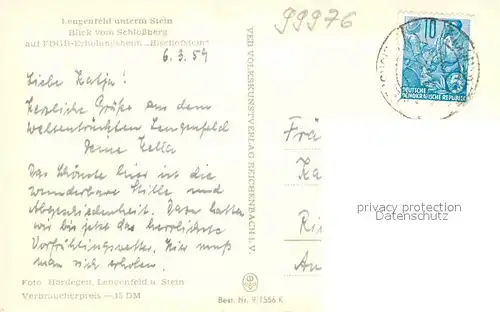 Lengenfeld unterm Stein
Blick vom Schloßberg
auf FDGB-Erholungsheim „Bischofstein"
99976
6.3.59
Liebe Katja!
Herzliche Grüße aus dem
weltentrückten Lengenfeld
Deine Hella
Das Schönste hier ist die
wunderbare Stille und
Abgeschiedenheit. Dazu hatten
wir bis jetzt das herrlichste
Vorfrühlingswetter. Hier muß
man sich erholen.
Foto Hardegen, Lengenfeld u. Stein
Verbraucherpreis —.15 DM
VEB VOLKSKUNSTVERLAG REICHENBACH I. V.
Best. Nr. 9/1556 K
10
DEUTSCHE
DEMOKRATISCHE REPUBLIK
Frä
Ka
Ri
An
privacy protection
Datenschutz